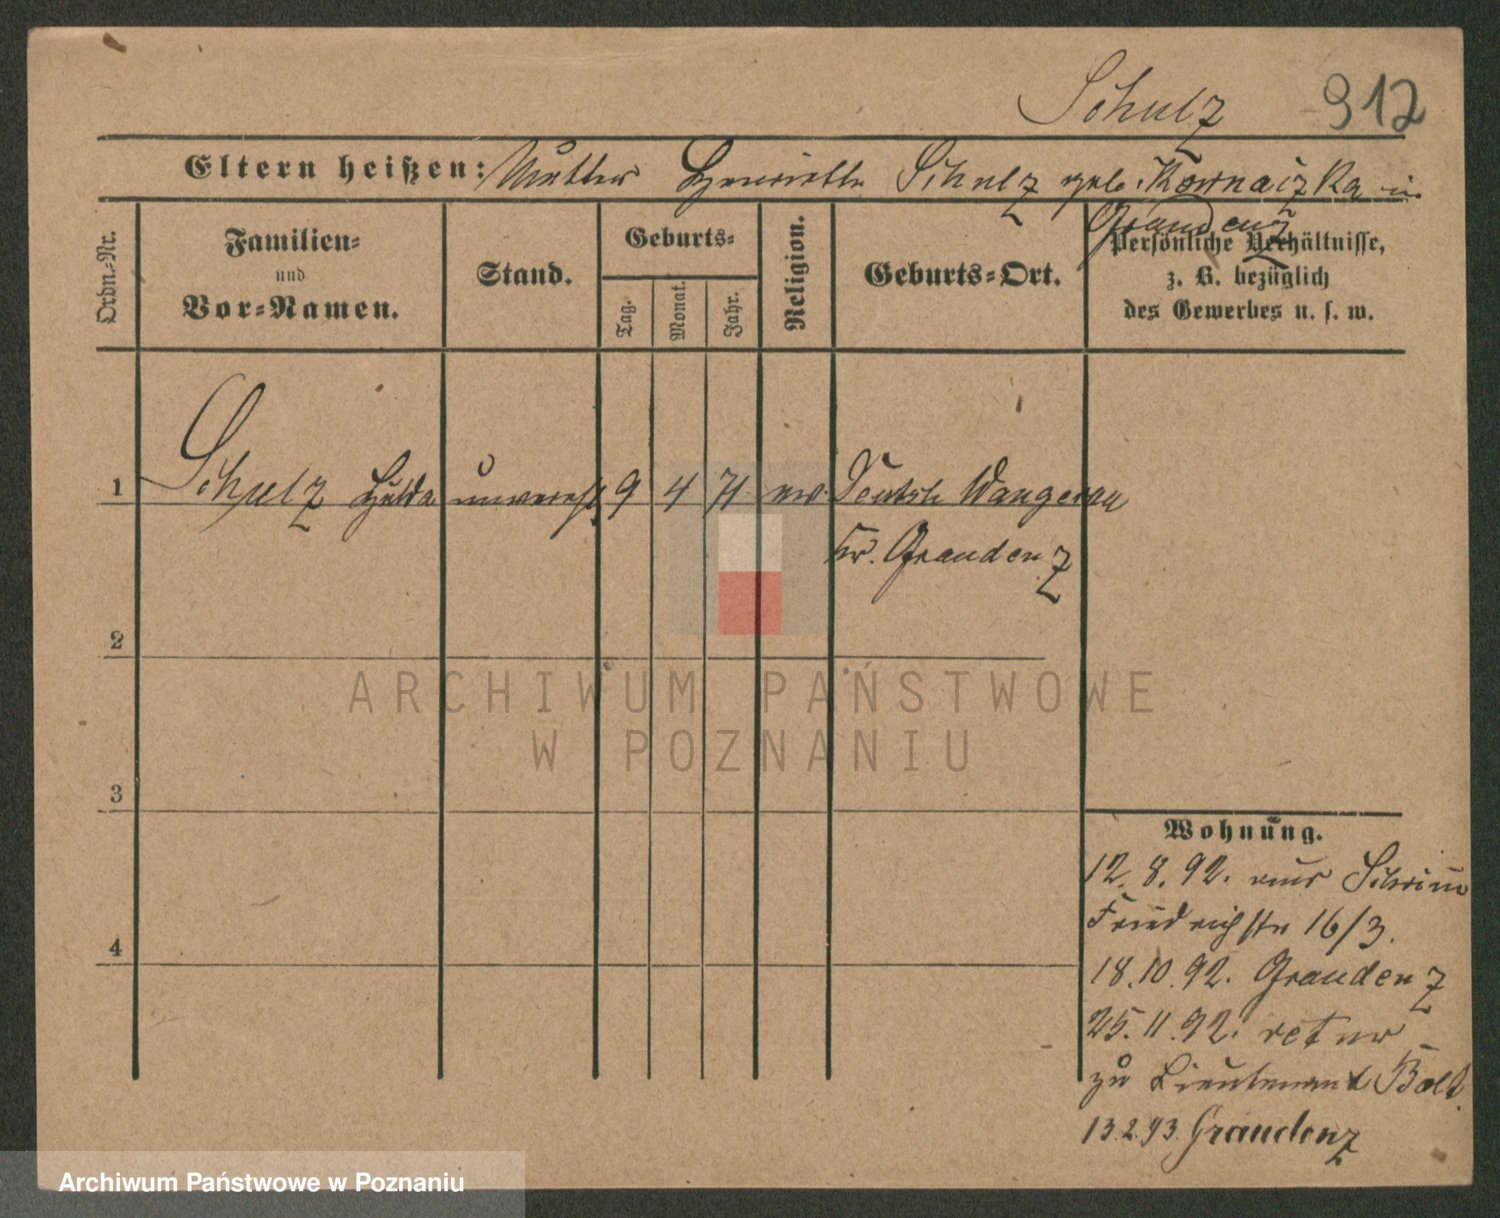 Schulz 912
Eltern heißen: Mutter Henriette Schulz geb. Kornaczka in
Graudenz
Ordn.-Nr.
Familien-
und
Vor-Namen.
Stand.
Geburts-
Tag.
Monat.
Jahr.
Religion.
Geburts-Ort.
Persönliche Verhältnisse,
z. B. bezüglich
des Gewerbes u. s. w.
1 Schulz Hulda unvereh. 9 4 71 ev. Deutsch Wangerau
Kr. Graudenz
2
3
4
Wohnung.
12. 8. 92. aus Schrimm
Friedrichstr 16/3.
18. 10. 92. Graudenz
25. 11. 92. retur
zu Lieutenant
13. 2. 93. Graudenz
ARCHIWUM PAŃSTWOWE
W POZNANIU
Archiwum Państwowe w Poznaniu